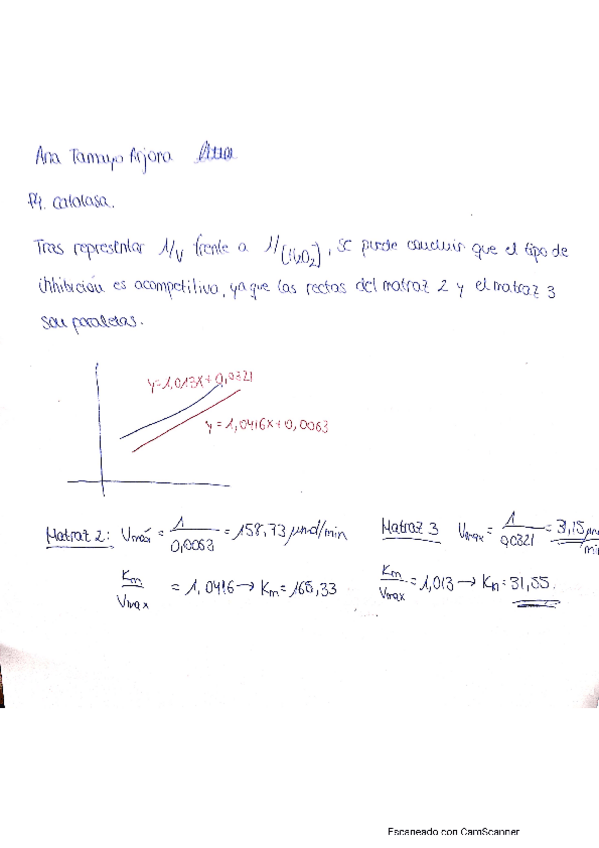 Ana Tamayo Arjona
P4. Catalasa.
Tras representar 1/V frente a 1/[H2O2], se puede concluir que el tipo de
inhibición es acompetitivo, ya que las rectas del matraz 2 y el matraz 3
son paralelas.
y=1,013x+0,0321
y=1,0416x+0,0063
Matraz 2: Vmáx = 1/0,0063 = 158,73 μmol/min
Matraz 3 Vmax = 1/0,0321 =
Km/Vmax = 1,0416 → Km=165,33
Km/Vmax = 1,013 → Km=31,55.
Escaneado con CamScanner